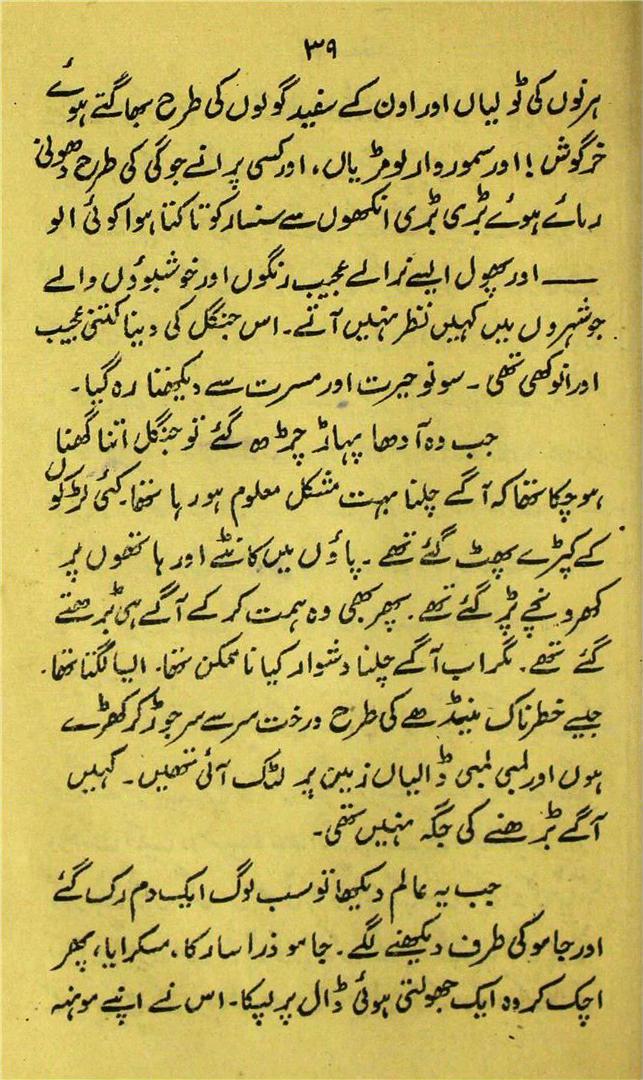 ۳۹
ہرنوں کی ٹولیاں اور اون کے سفید گولوں کی طرح بھاگتے ہوئے
خرگوش! اور سموردار لومڑیاں، اور کسی پرانے جوگی کی طرح دھونی
رمائے ہوئے بڑی بڑی انکھوں سے سنسار کو تاکتا ہوا کوئی الو
—— اور پھول ایسے نرالے عجیب رنگوں اور خوشبوؤں والے
جو شہروں میں کہیں نظر نہیں آتے۔ اس جنگل کی دینا کتنی عجیب
اور انوکھی تھی۔ سونو حیرت اور مسرت سے دیکھتا رہ گیا۔
جب وہ آدھا پہاڑ چڑھ گئے تو جنگل اتنا گھنا
ہو چکا تھا کہ آگے چلنا بہت مشکل معلوم ہو رہا تھا۔ کئی لڑکوں
کے کپڑے پھٹ گئے تھے۔ پاؤں میں کانٹے اور ہاتھوں پر
کھرونچے پڑ گئے تھے۔ پھر بھی وہ ہمت کر کے آگے ہی بڑھتے
گئے تھے۔ مگر اب آگے چلنا دشوار کیا ناممکن تھا۔ ایسا لگتا تھا۔
جیسے خطرناک مینڈھے کی طرح درخت سر سے سر جوڑ کر کھڑے
ہوں اور لمبی لمبی ڈالیاں زمین پر لٹک آئی تھیں۔ کہیں
آگے بڑھنے کی جگہ نہیں تھی۔
جب یہ عالم دیکھا تو سب لوگ ایک دم رک گئے
اور جامو کی طرف دیکھنے لگے۔ جامو ذرا سا رکا، مسکرایا، پھر
اچک کر وہ ایک جھولتی ہوئی ڈال پر لپکا۔ اس نے اپنے مونہہ